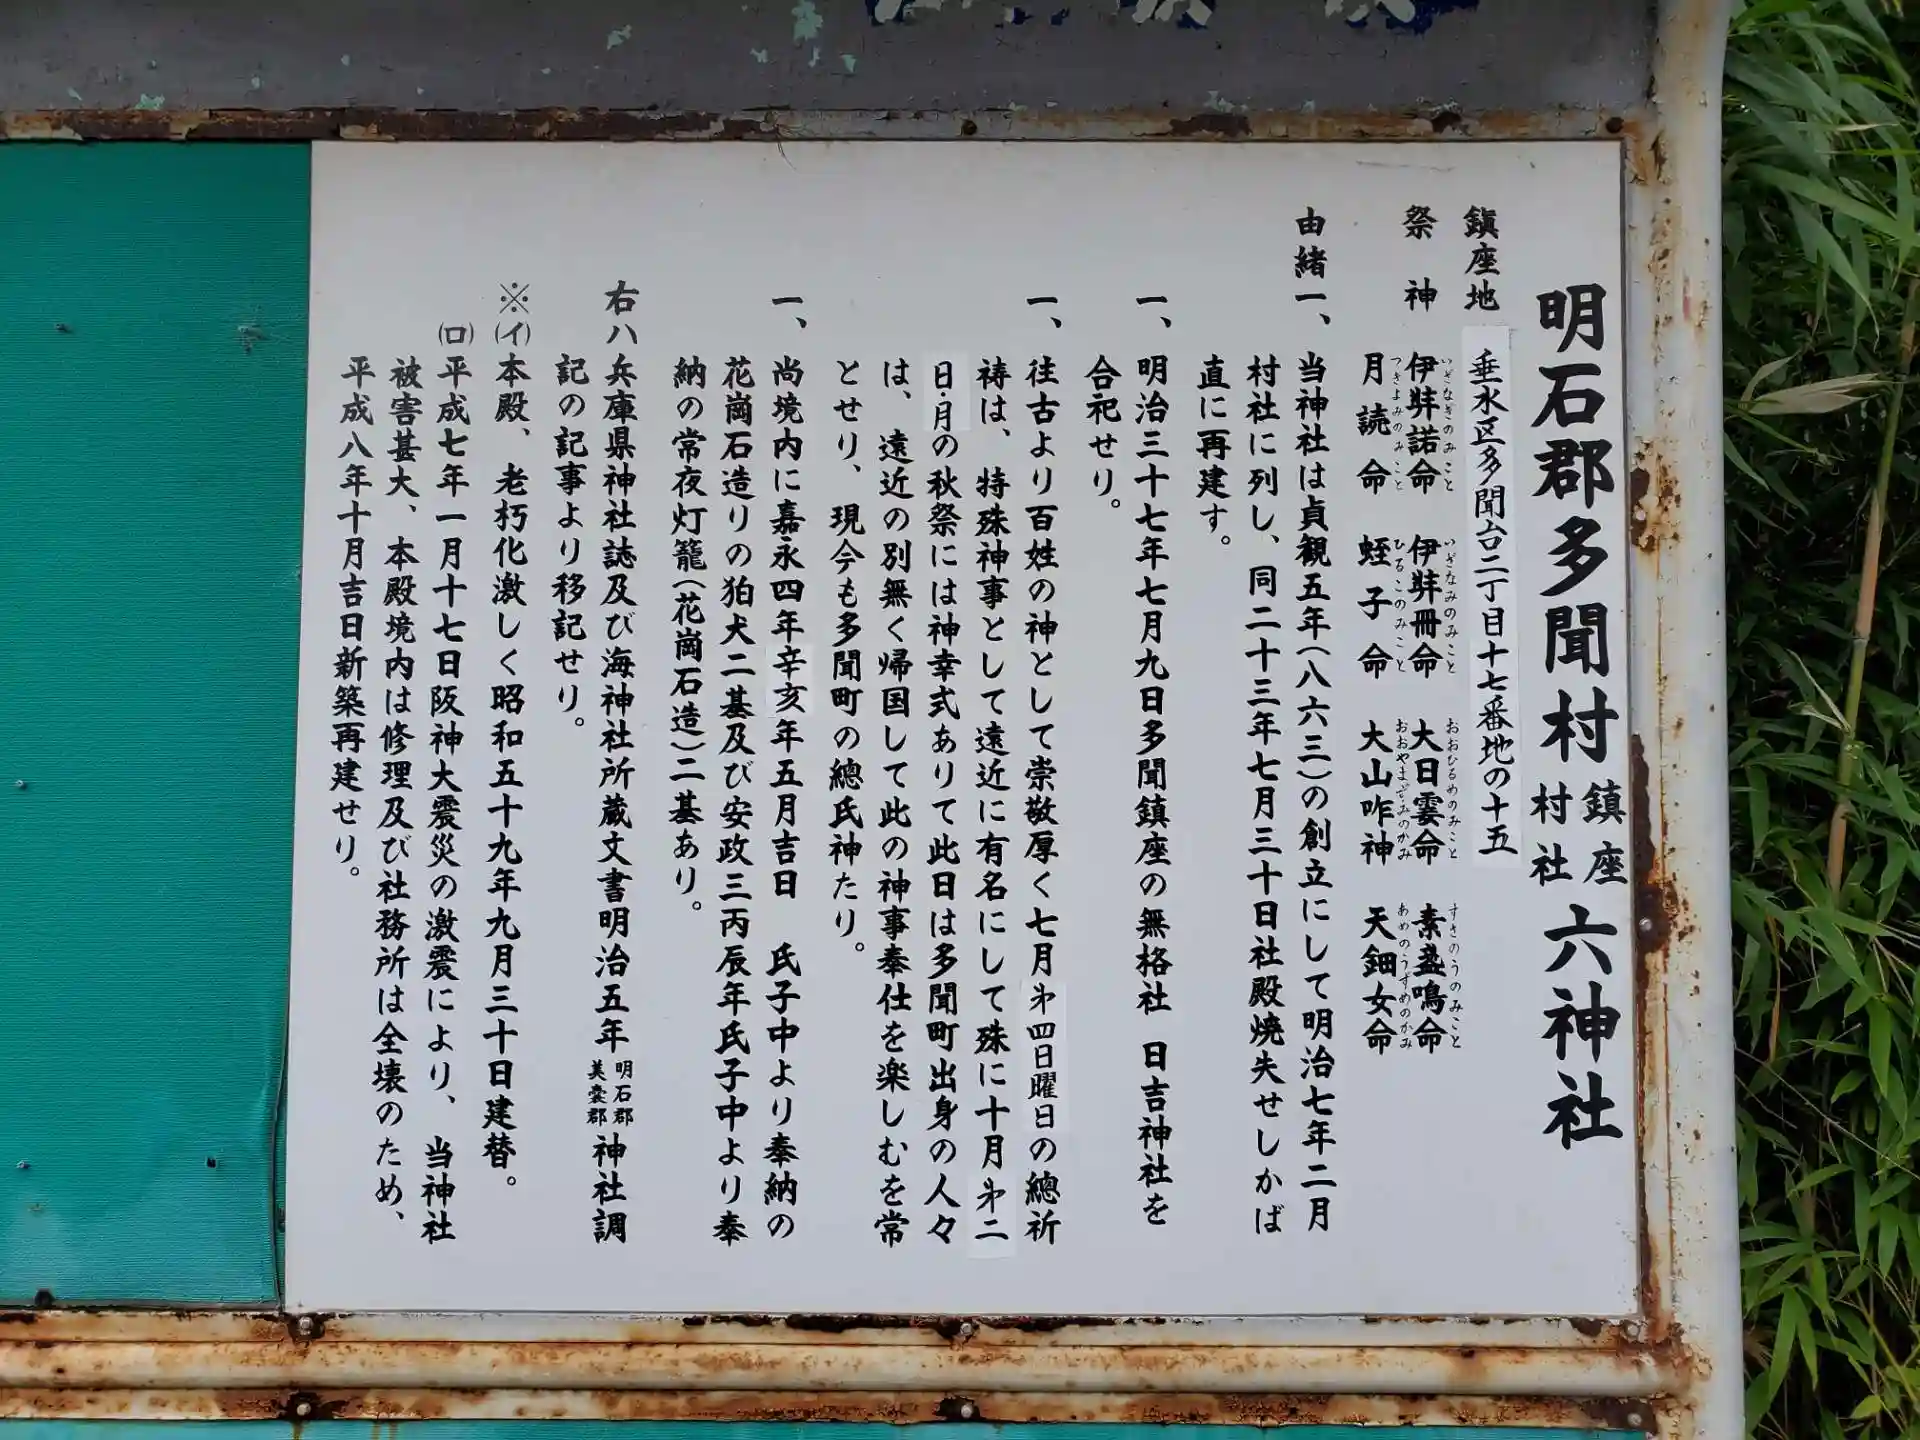 明石郡多聞村 鎮座 村社 六神社
鎮座地 垂水区多聞台二丁目十七番地の十五
祭神 伊弉諾命 伊弉冊命 大日孁命 素盞鳴命
いざなぎのみこと いざなみのみこと おおひるめのみこと すさのうのみこと
月読命 蛭子命 大山咋神 天鈿女命
つきよみのみこと ひるこのみこと おおやまずみのかみ あめのうずめのかみ
由緒一、当神社は貞観五年(八六三)の創立にして明治七年二月
村社に列し、同二十三年七月三十日社殿焼失せしかば
直に再建す。
一、明治三十七年七月九日多聞鎮座の無格社 日吉神社を
合祀せり。
一、往古より百姓の神として崇敬厚く七月㐧四日曜日の總祈
祷は、特殊神事として遠近に有名にして殊に十月㐧二
日・月の秋祭には神幸式ありて此日は多聞町出身の人々
は、遠近の別無く帰国して此の神事奉仕を楽しむを常
とせり、現今も多聞町の總氏神たり。
一、尚境内に嘉永四年辛亥年五月吉日 氏子中より奉納の
花崗石造りの狛犬二基及び安政三丙辰年氏子中より奉
納の常夜灯籠(花崗石造)二基あり。
右ハ兵庫県神社誌及び海神社所蔵文書明治五年 明石郡 美嚢郡 神社調
記の記事より移記せり。
※(イ)本殿、老朽化激しく昭和五十九年九月三十日建替。
(ロ)平成七年一月十七日阪神大震災の激震により、当神社
被害甚大、本殿境内は修理及び社務所は全壊のため、
平成八年十月吉日新築再建せり。